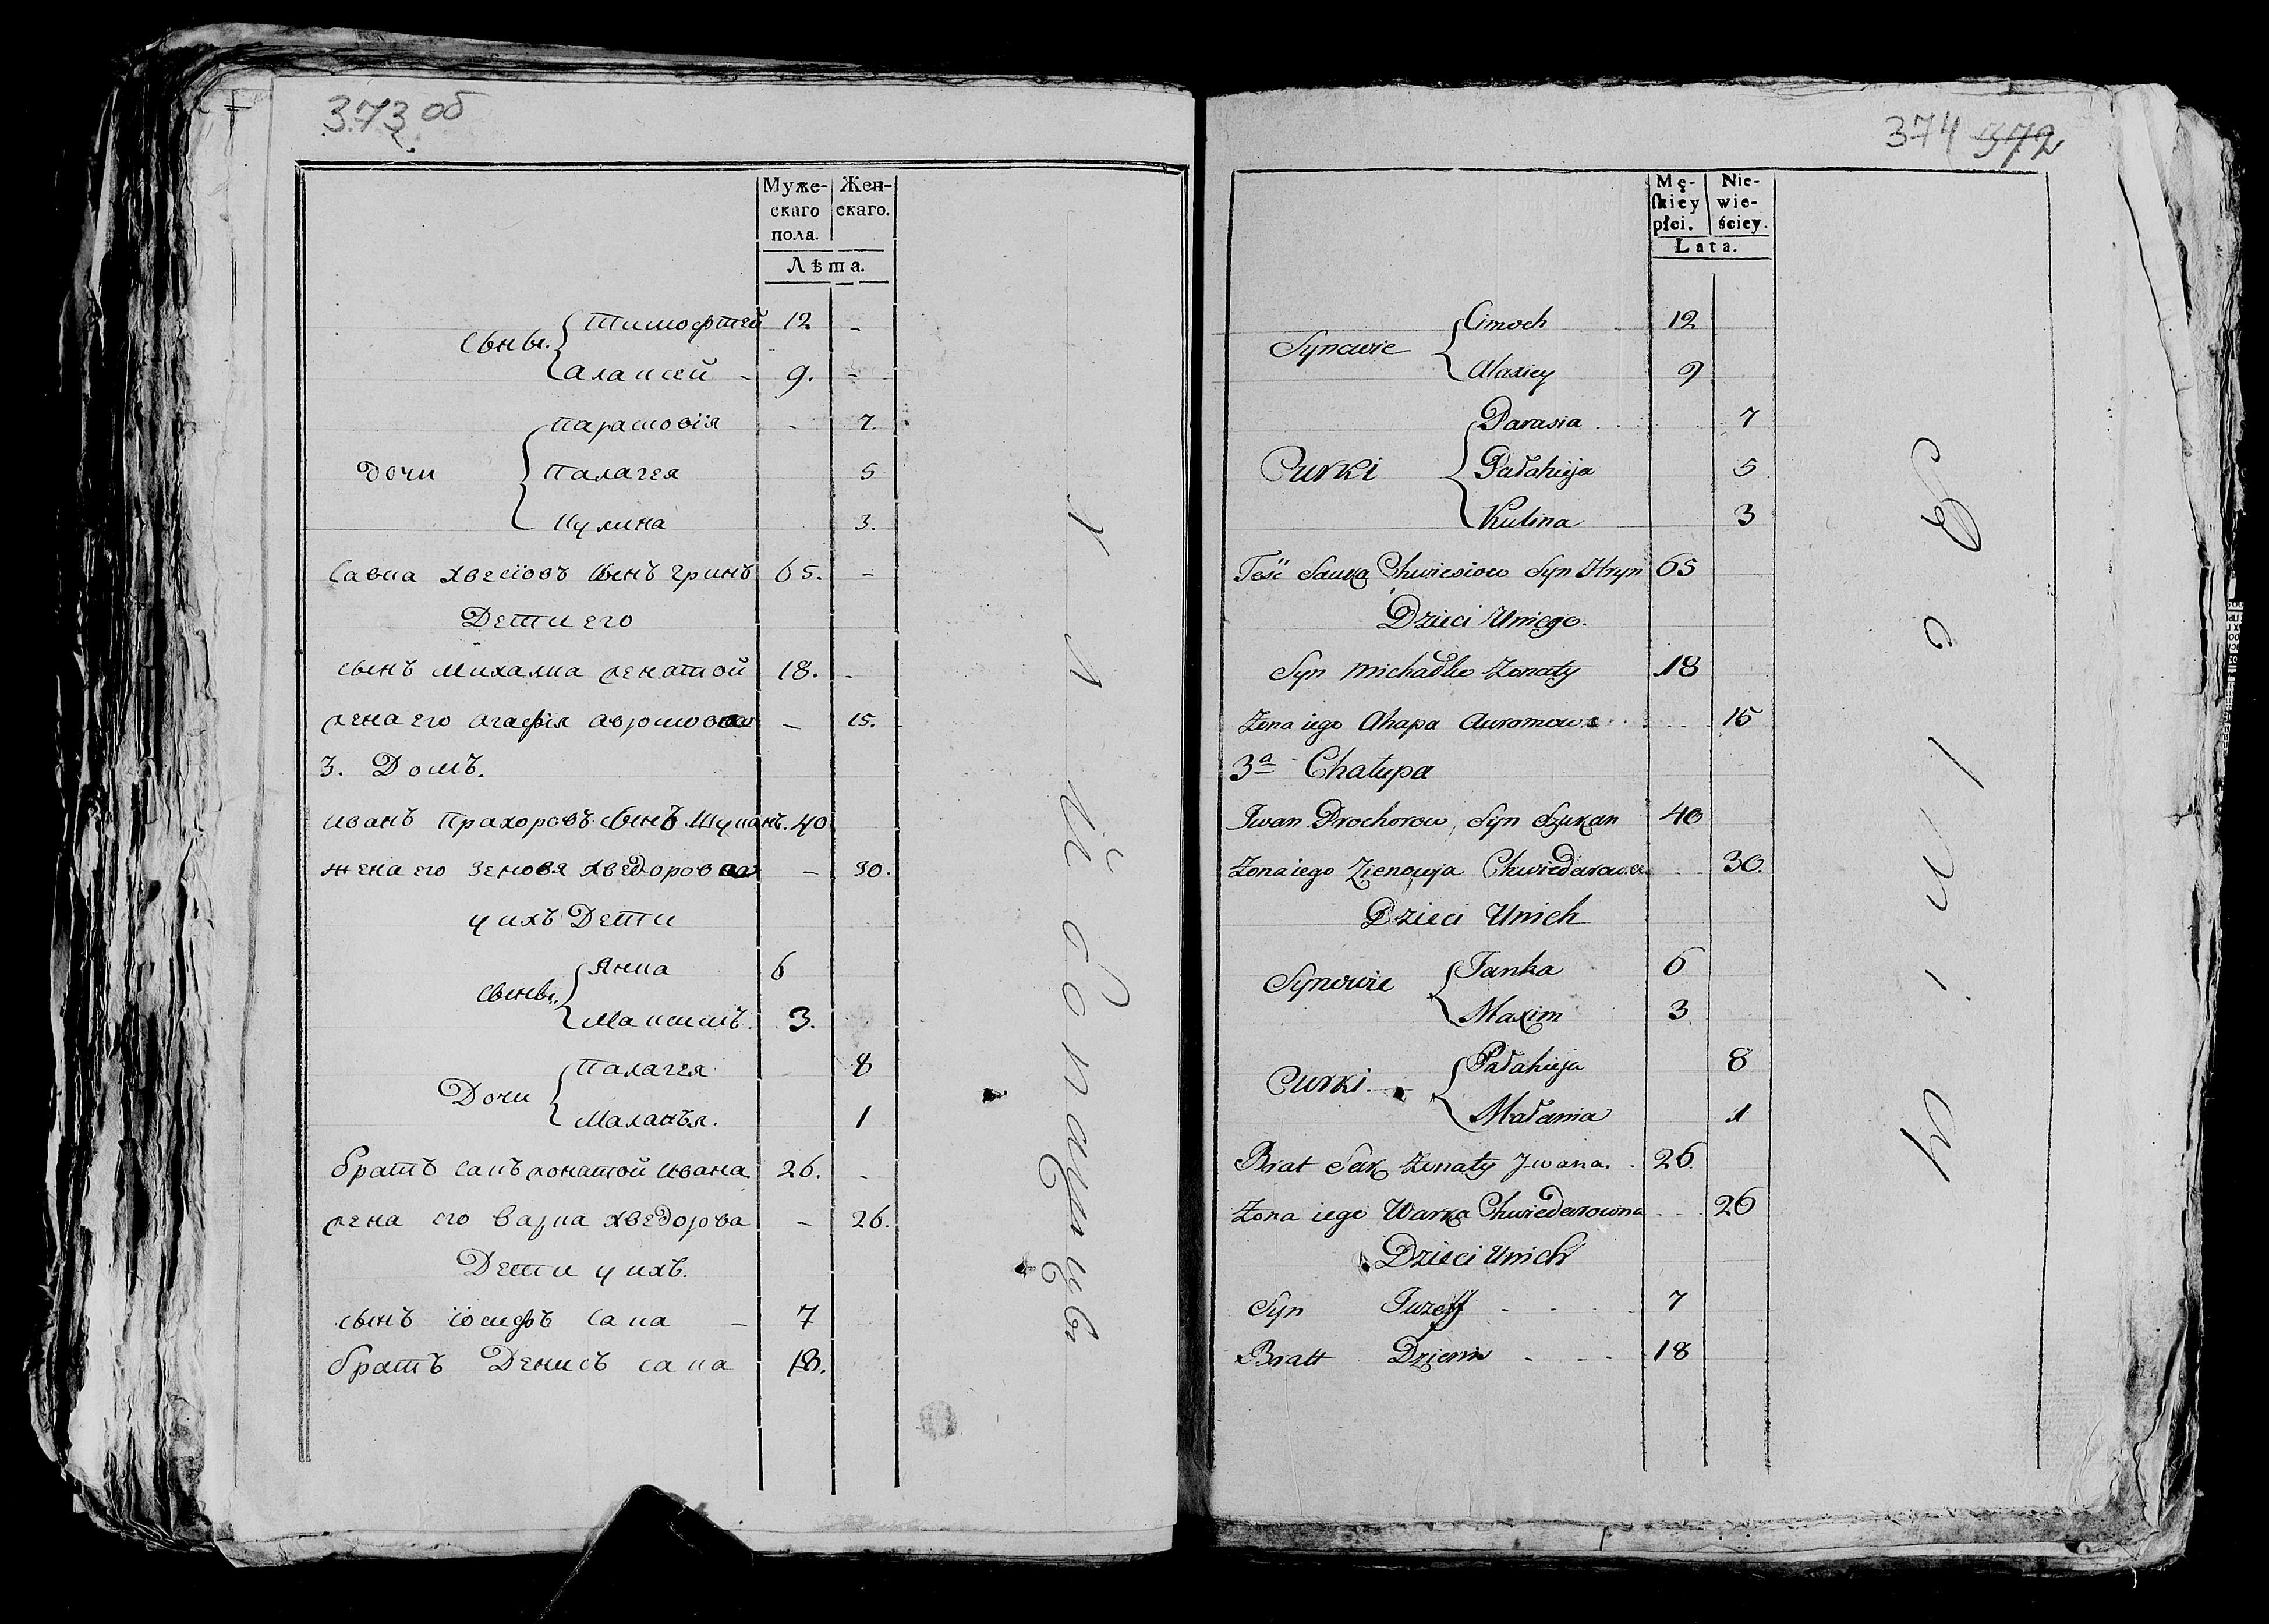 373 об
Муже-
скаго
пола.
Жен-
скаго.
Лѣта.
Сыны. Тимофтей 12 -
Алаксей - 9. -
Дочи Парасковія - 7
Палагея 5
Кулина 3.
Савка Хвесіовъ сынъ Гринъ 65. -
Дети его
сынъ Михалка женатой 18. -
жена его Агафія - 15.
3. Домъ.
иванъ Прахоровъ сынъ Шуканъ. 40
жена его Зеновя - 30.
у ихъ Дети
сыны. Янка 6
Максимъ. 3.
Дочи Палагея 8
Маланья. 1
братъ Сакъ жонатой ивана 26. -
жена его Варка Хведорова - 26.
Дети у ихъ.
сынъ іосифъ Сака - 7
братъ Денисъ сака 18.
374 372
Mę-
skiey
płci.
Nie-
wie-
ściey.
Lata.
Synowie Cimoch 12
Alaxiey 9
Curki Parasia 7
Pałahieja 5
Kulina 3
Teść Sauka Chwiesiow Syn Hryn 65
Dzieci Uniego.
Syn Michałko Zonaty 18
Zona iego Ahapa 15
3a Chałupa
Iwan Prochorow Syn Szukan 40
Zona iego Zienowja 30.
Dzieci Unich
Synowie Janka 6
Maxim 3
Curki Pałahieja 8
Małania 1
Brat Sak Zonaty Jwana. 26.
Zona iego Warka Chwiedarowna 26
Dzieci Unich
Syn Juzeff 7
Bratt Dzienis 18